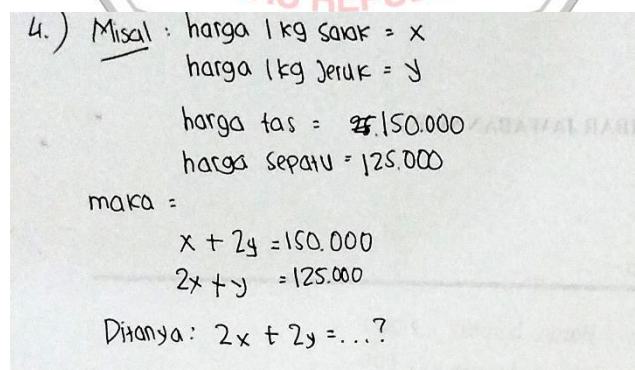 4.) Misal : harga 1 kg salak = x
harga 1 kg Jeruk = y
harga tas = 150.000
harga sepatu = 125.000
maka =
x + 2y = 150.000
2x + y = 125.000
Ditanya : 2x + 2y = ...?